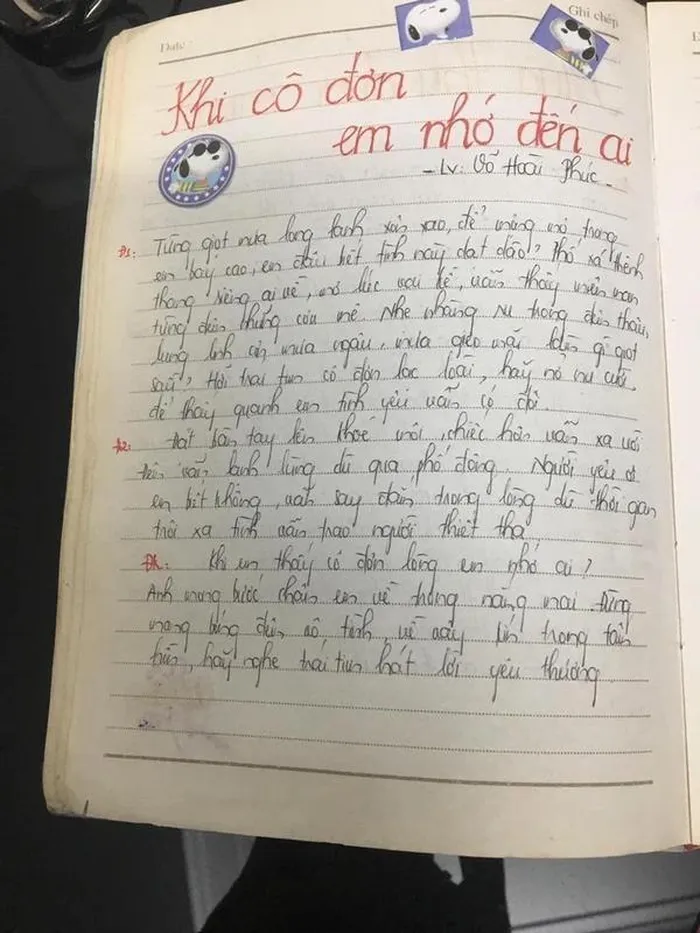 Date:
Ghi chép
Khi cô đơn
em nhớ đến ai
- Lv: Võ Hoài Phúc -
Đ1: Từng giọt mưa long lanh xôn xao, để mộng mơ trong
em bay cao, em đâu biết tình này dạt dào? Phố xá thênh
thang riêng ai về, mơ lúc vai kề, vẫn thấy miên man
từng đêm những cơn mê. Nhẹ nhàng ru trong đêm thâu,
lung linh cơn mưa ngâu, mưa gieo mãi
sầu? Hỡi trái tim cô đơn lạc loài, hãy nở nụ cười,
để thấy quanh em tình yêu vẫn có đôi.
Đ2: Đặt bàn tay lên khoé môi, chiếc hôn vẫn xa vời
đêm vẫn lạnh lùng dù qua phố đông. Người yêu ơi
em biết không, vẫn say đắm trong lòng dù thời gian
trôi xa tình vẫn trao người thiết tha
Đk: Khi em thấy cô đơn lòng em nhớ ai?
Anh mong bước chân em về trong nắng mai. Đừng
mang bóng đêm vô tình, về vây kín trong tâm
hồn, hãy nghe trái tim hát lời yêu thương